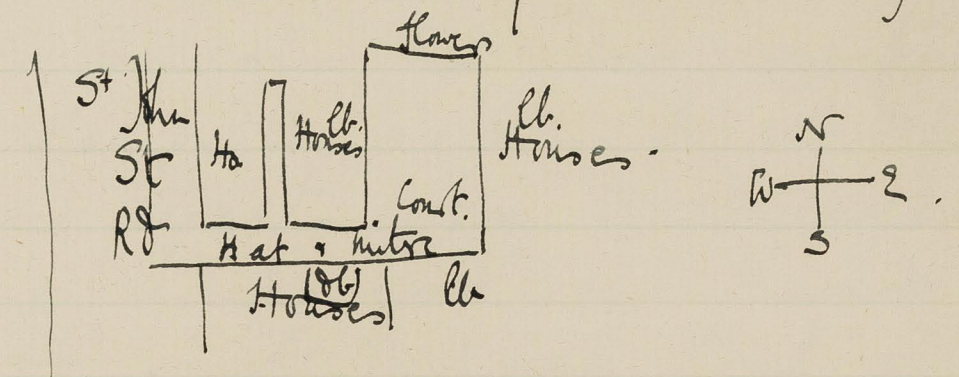 Houses
St John
St
Rd
Ho
lb.
Houses
lb.
Houses.
Court.
Hat & mitre
(db)
Houses
lb
N
W E.
S